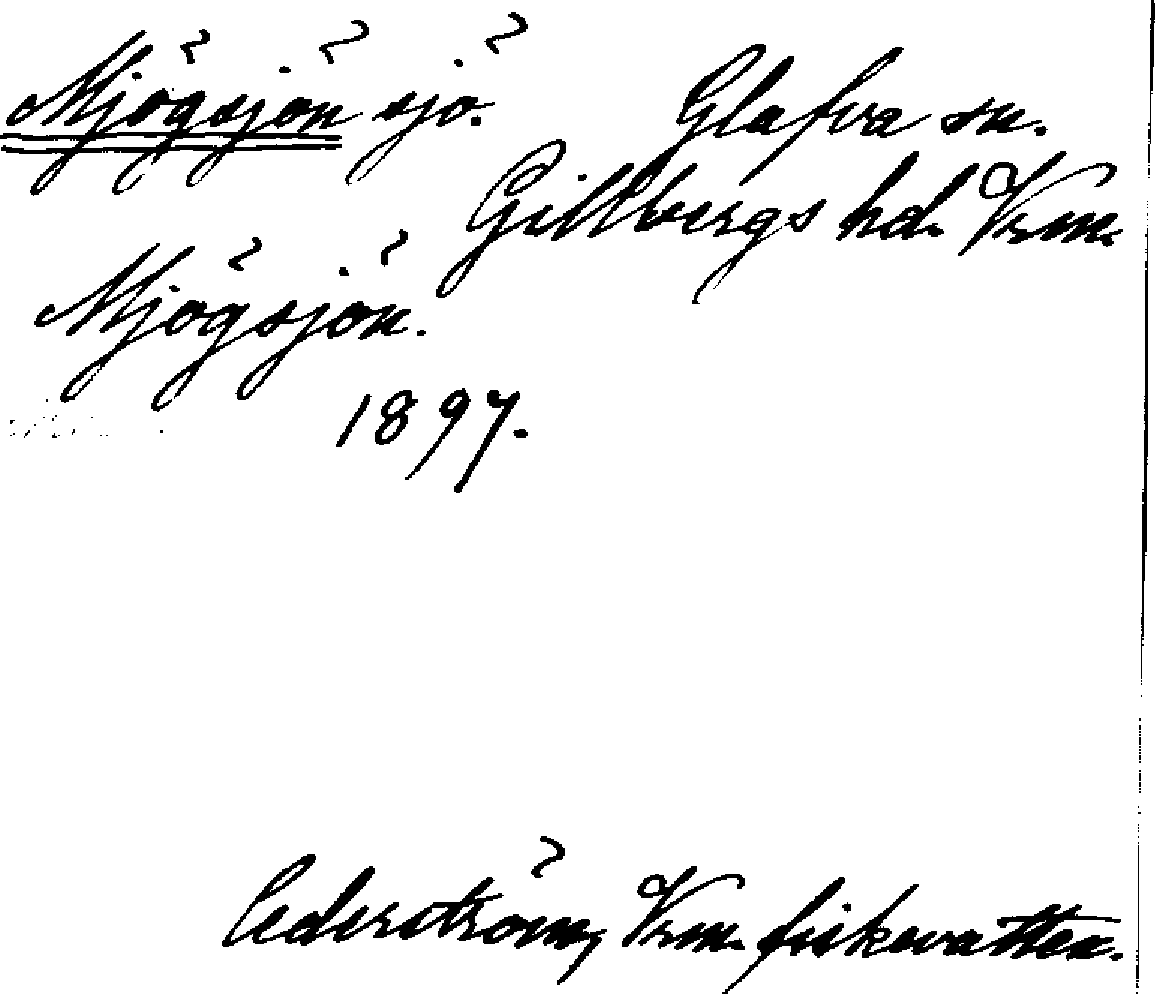 Mjögsjön sjö. Glafva sn.
Gillbergs hd. Vrm.
Mjögsjön.
1897.
Cederström, Vrm. fiskevatten.